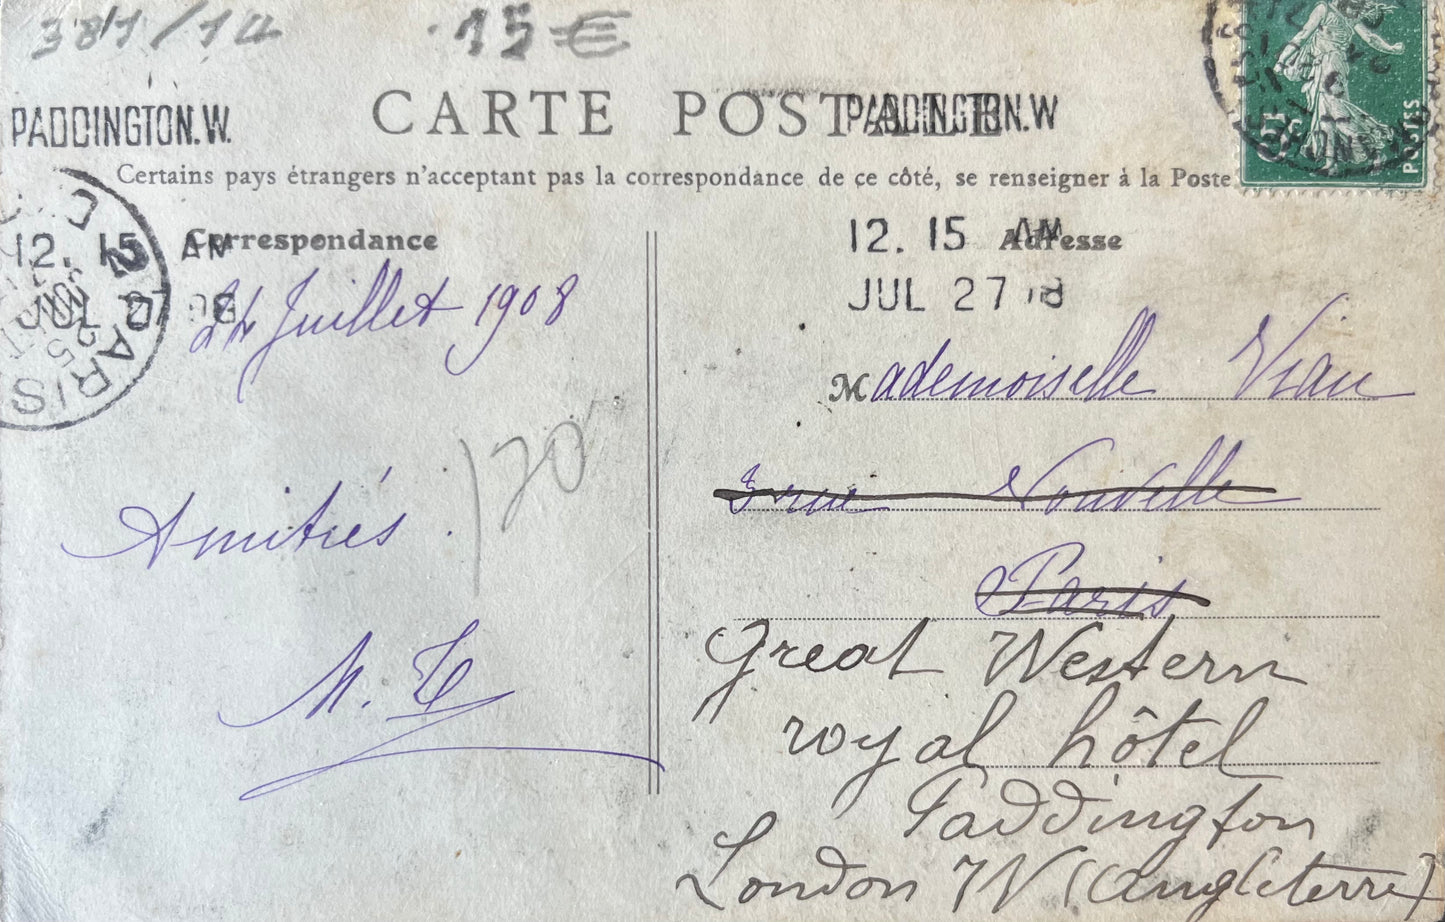 387/14
15 €
PADDINGTON.W.
CARTE POSTALE
PADDINGTON.W
Certains pays étrangers n'acceptent pas la correspondance de ce côté, se renseigner à la Poste
POSTES
12. 15 AM
Correspondance
JUL 27 08
PARIS
25
24 Juillet 1908
120
Amitiés.
12. 15 AM
Adresse
JUL 27 08
Mademoiselle Vian
3 rue Nouvelle
Paris
Great Western
royal hôtel
Paddington
London W (Angleterre)